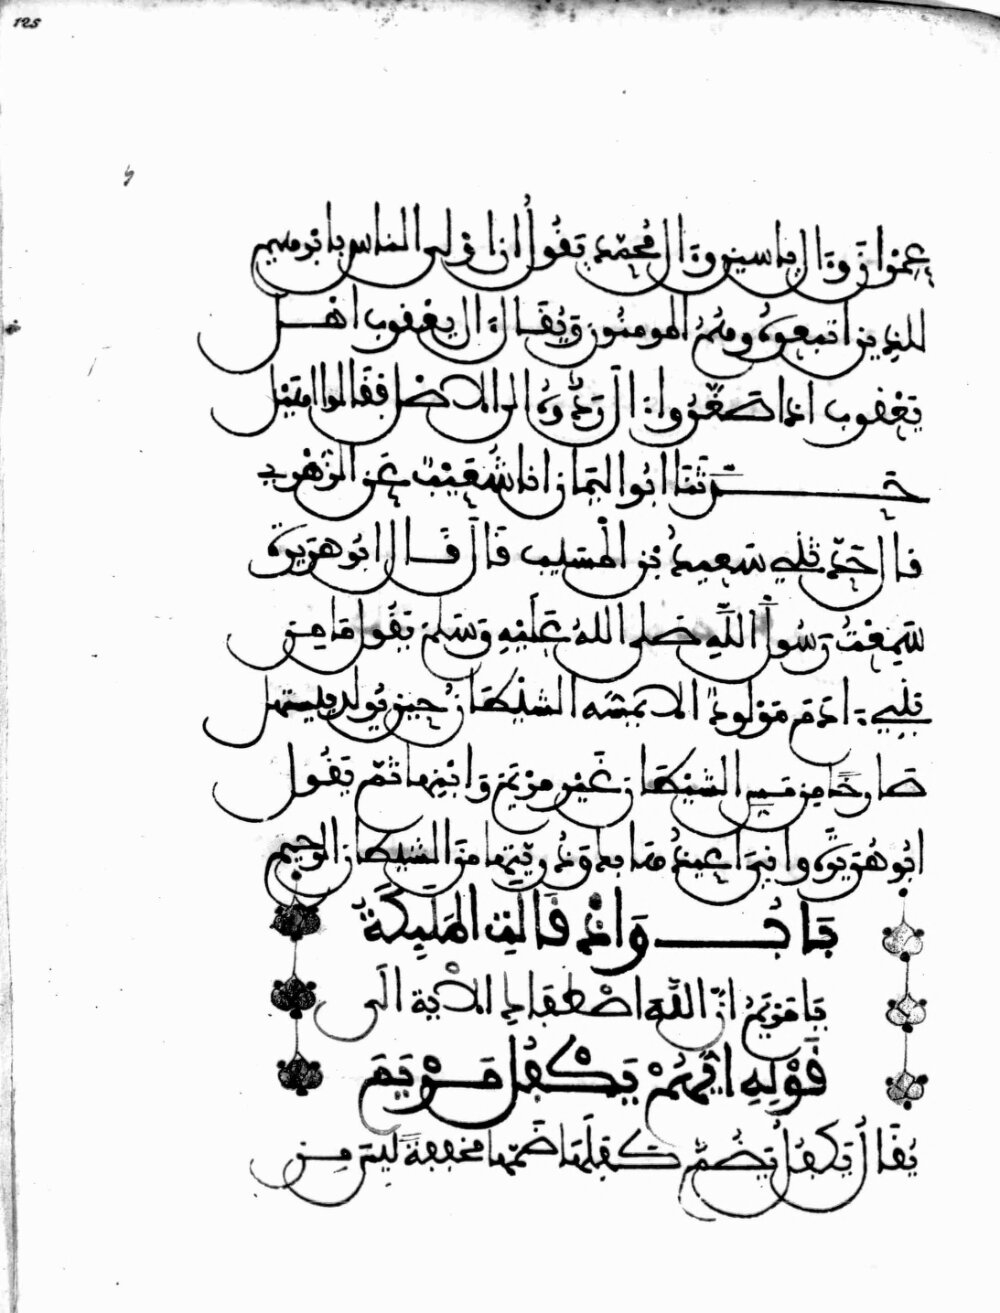 125
عِمْرَانَ وَءَالِ ياسين وَءَالِ مُحمَّد يَقُولُ ان اوْلى الناس بابْرهيم
للذِينَ اتَّبعوهُ وهُمُ المومنُون وَيُقَالُ ءَالُ يعْقوب اهْل
يَعْقوب اذا صَغَّرُوا ءَالَ رَدُّوهُ الى الاصْل فقَالوا اهَيْل
حَدَّثَنَا ابُو اليَمَان انا شُعَيْب عَن الزهْري
قال حَدَّثني سَعيدُ بن المُسَيب قَالَ قَالَ ابُو هُرَيرة
سَمِعْتُ رَسُولَ اللَّهِ صَلى اللهُ عَلَيْهِ وَسَلم يَقُول مَا مِن
بَنِي ءَادَمَ مَوْلودٌ الا يمَسُّه الشيْطَان حِين يُولد فيستهل
صَارخًا مِن مَسِّ الشيْطَان غَيْر مرْيَم وَابْنِها ثمَّ يَقُول
ابُو هُرَيرَةَ وانِّي اعيذُها بك وَذُريتها منَ الشيطان الرجيم
بَابُ وَاذ قَالَتِ المَلَيِكَةُ
يَا مَرْيَمُ انَّ اللَّهَ اصْطفَاكِ الاْيةَ الَى
قَوْلِهِ ايُّهُمْ يَكْفُلُ مَرْيَمَ
يُقَالُ يَكفُلُ يَضُمُّ كَفَلَهَا ضَمَّها مخففةً ليْسَ مِن